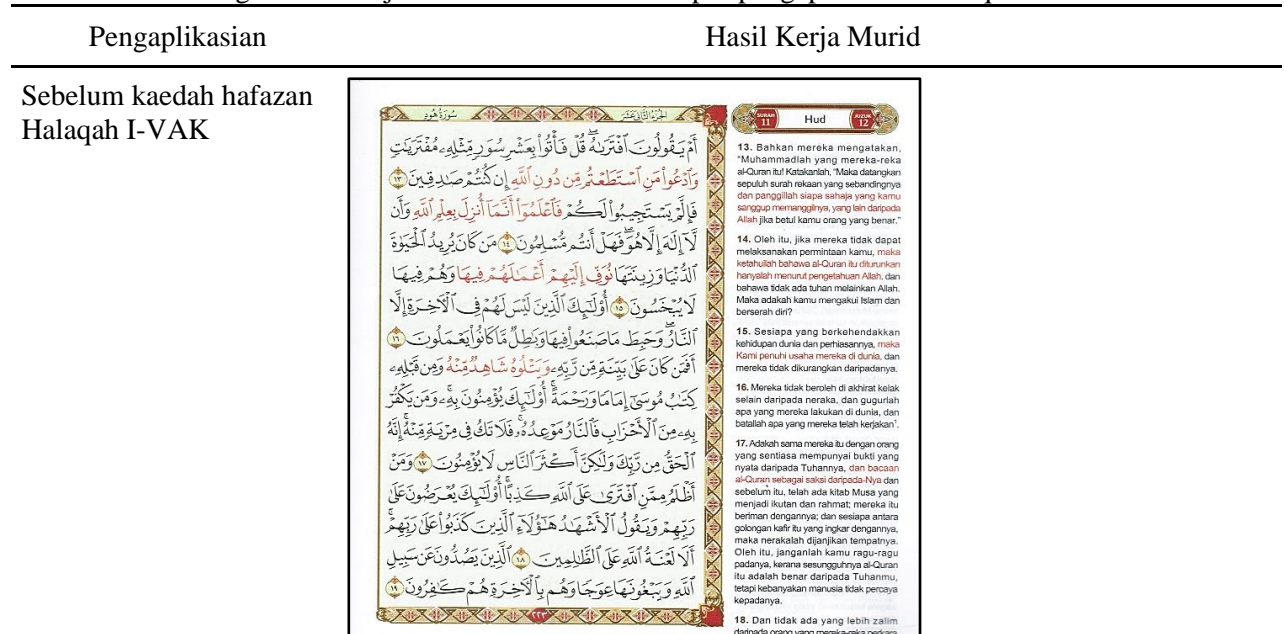 Pengaplikasian
Hasil Kerja Murid
Sebelum kaedah hafazan
Halaqah I-VAK
الجزء الثاني عشر
سورة هود
أَمْ يَقُولُونَ ٱفْتَرَىٰهُ ۖ قُلْ فَأْتُوا۟ بِعَشْرِ سُوَرٍ مِّثْلِهِۦ مُفْتَرَيَٰتٍ
وَٱدْعُوا۟ مَنِ ٱسْتَطَعْتُم مِّن دُونِ ٱللَّهِ إِن كُنتُمْ صَٰدِقِينَ ١٣
فَإِلَّمْ يَسْتَجِيبُوا۟ لَكُمْ فَٱعْلَمُوٓا۟ أَنَّمَآ أُنزِلَ بِعِلْمِ ٱللَّهِ وَأَن
لَّآ إِلَٰهَ إِلَّا هُوَ ۖ فَهَلْ أَنتُم مُّسْلِمُونَ ١٤ مَن كَانَ يُرِيدُ ٱلْحَيَوٰةَ
ٱلدُّنْيَا وَزِينَتَهَا نُوَفِّ إِلَيْهِمْ أَعْمَٰلَهُمْ فِيهَا وَهُمْ فِيهَا
لَا يُبْخَسُونَ ١٥ أُو۟لَٰٓئِكَ ٱلَّذِينَ لَيْسَ لَهُمْ فِى ٱلْءَاخِرَةِ إِلَّا
ٱلنَّارُ ۖ وَحَبِطَ مَا صَنَعُوا۟ فِيهَا وَبَٰطِلٌ مَّا كَانُوا۟ يَعْمَلُونَ ١٦
أَفَمَن كَانَ عَلَىٰ بَيِّنَةٍ مِّن رَّبِّهِۦ وَيَتْلُوهُ شَاهِدٌ مِّنْهُ وَمِن قَبْلِهِۦ
كِتَٰبُ مُوسَىٰٓ إِمَامًا وَرَحْمَةً ۚ أُو۟لَٰٓئِكَ يُؤْمِنُونَ بِهِۦ ۚ وَمَن يَكْفُرْ
بِهِۦ مِنَ ٱلْأَحْزَابِ فَٱلنَّارُ مَوْعِدُهُۥ ۚ فَلَا تَكُ فِى مِرْيَةٍ مِّنْهُ ۚ إِنَّهُ
ٱلْحَقُّ مِن رَّبِّكَ وَلَٰكِنَّ أَكْثَرَ ٱلنَّاسِ لَا يُؤْمِنُونَ ١٧ وَمَنْ
أَظْلَمُ مِمَّنِ ٱفْتَرَىٰ عَلَى ٱللَّهِ كَذِبًا ۚ أُو۟لَٰٓئِكَ يُعْرَضُونَ عَلَىٰ
رَبِّهِمْ وَيَقُولُ ٱلْأَشْهَٰدُ هَٰٓؤُلَآءِ ٱلَّذِينَ كَذَبُوا۟ عَلَىٰ رَبِّهِمْ ۚ
أَلَا لَعْنَةُ ٱللَّهِ عَلَى ٱلظَّٰلِمِينَ ١٨ ٱلَّذِينَ يَصُدُّونَ عَن سَبِيلِ
ٱللَّهِ وَيَبْغُونَهَا عِوَجًا وَهُم بِٱلْءَاخِرَةِ هُمْ كَٰفِرُونَ ١٩
٢٢٣
SURAH 11
Hud
JUZUK 12
13. Bahkan mereka mengatakan,
"Muhammadlah yang mereka-reka
al-Quran itu! Katakanlah, "Maka datangkan
sepuluh surah rekaan yang sebandingnya
dan panggillah siapa sahaja yang kamu
sanggup memanggilnya, yang lain daripada
Allah jika betul kamu orang yang benar."
14. Oleh itu, jika mereka tidak dapat
melaksanakan permintaan kamu, maka
ketahuilah bahawa al-Quran itu diturunkan
hanyalah menurut pengetahuan Allah, dan
bahawa tidak ada tuhan melainkan Allah.
Maka adakah kamu mengakui Islam dan
berserah diri?
15. Sesiapa yang berkehendakkan
kehidupan dunia dan perhiasannya, maka
Kami penuhi usaha mereka di dunia, dan
mereka tidak dikurangkan daripadanya.
16. Mereka tidak beroleh di akhirat kelak
selain daripada neraka, dan gugurlah
apa yang mereka lakukan di dunia, dan
batallah apa yang mereka telah kerjakan¹.
17. Adakah sama mereka itu dengan orang
yang sentiasa mempunyai bukti yang
nyata daripada Tuhannya, dan bacaan
al-Quran sebagai saksi daripada-Nya dan
sebelum itu, telah ada kitab Musa yang
menjadi ikutan dan rahmat; mereka itu
beriman dengannya; dan sesiapa antara
golongan kafir itu yang ingkar dengannya,
maka nerakalah dijanjikan tempatnya.
Oleh itu, janganlah kamu ragu-ragu
padanya, kerana sesungguhnya al-Quran
itu adalah benar daripada Tuhanmu,
tetapi kebanyakan manusia tidak percaya
kepadanya.
18. Dan tidak ada yang lebih zalim
daripada orang yang mereka-reka perkara